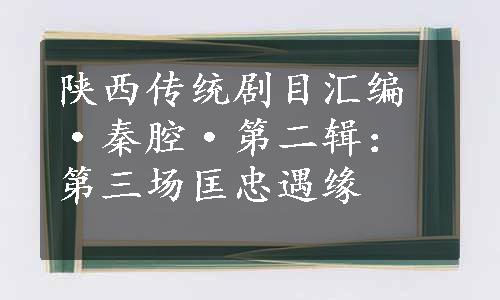 陕西传统剧目汇编
·秦腔·第二辑：
第三场匡忠遇缘